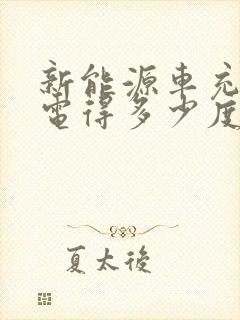 新能源車充
電得多少度
夏太後